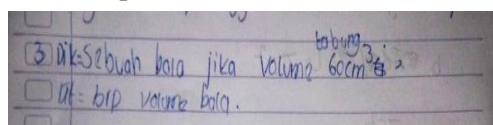 ③ Dik: Sebuah bola jika volume tabung 60cm³
Dit: brp volume bola.